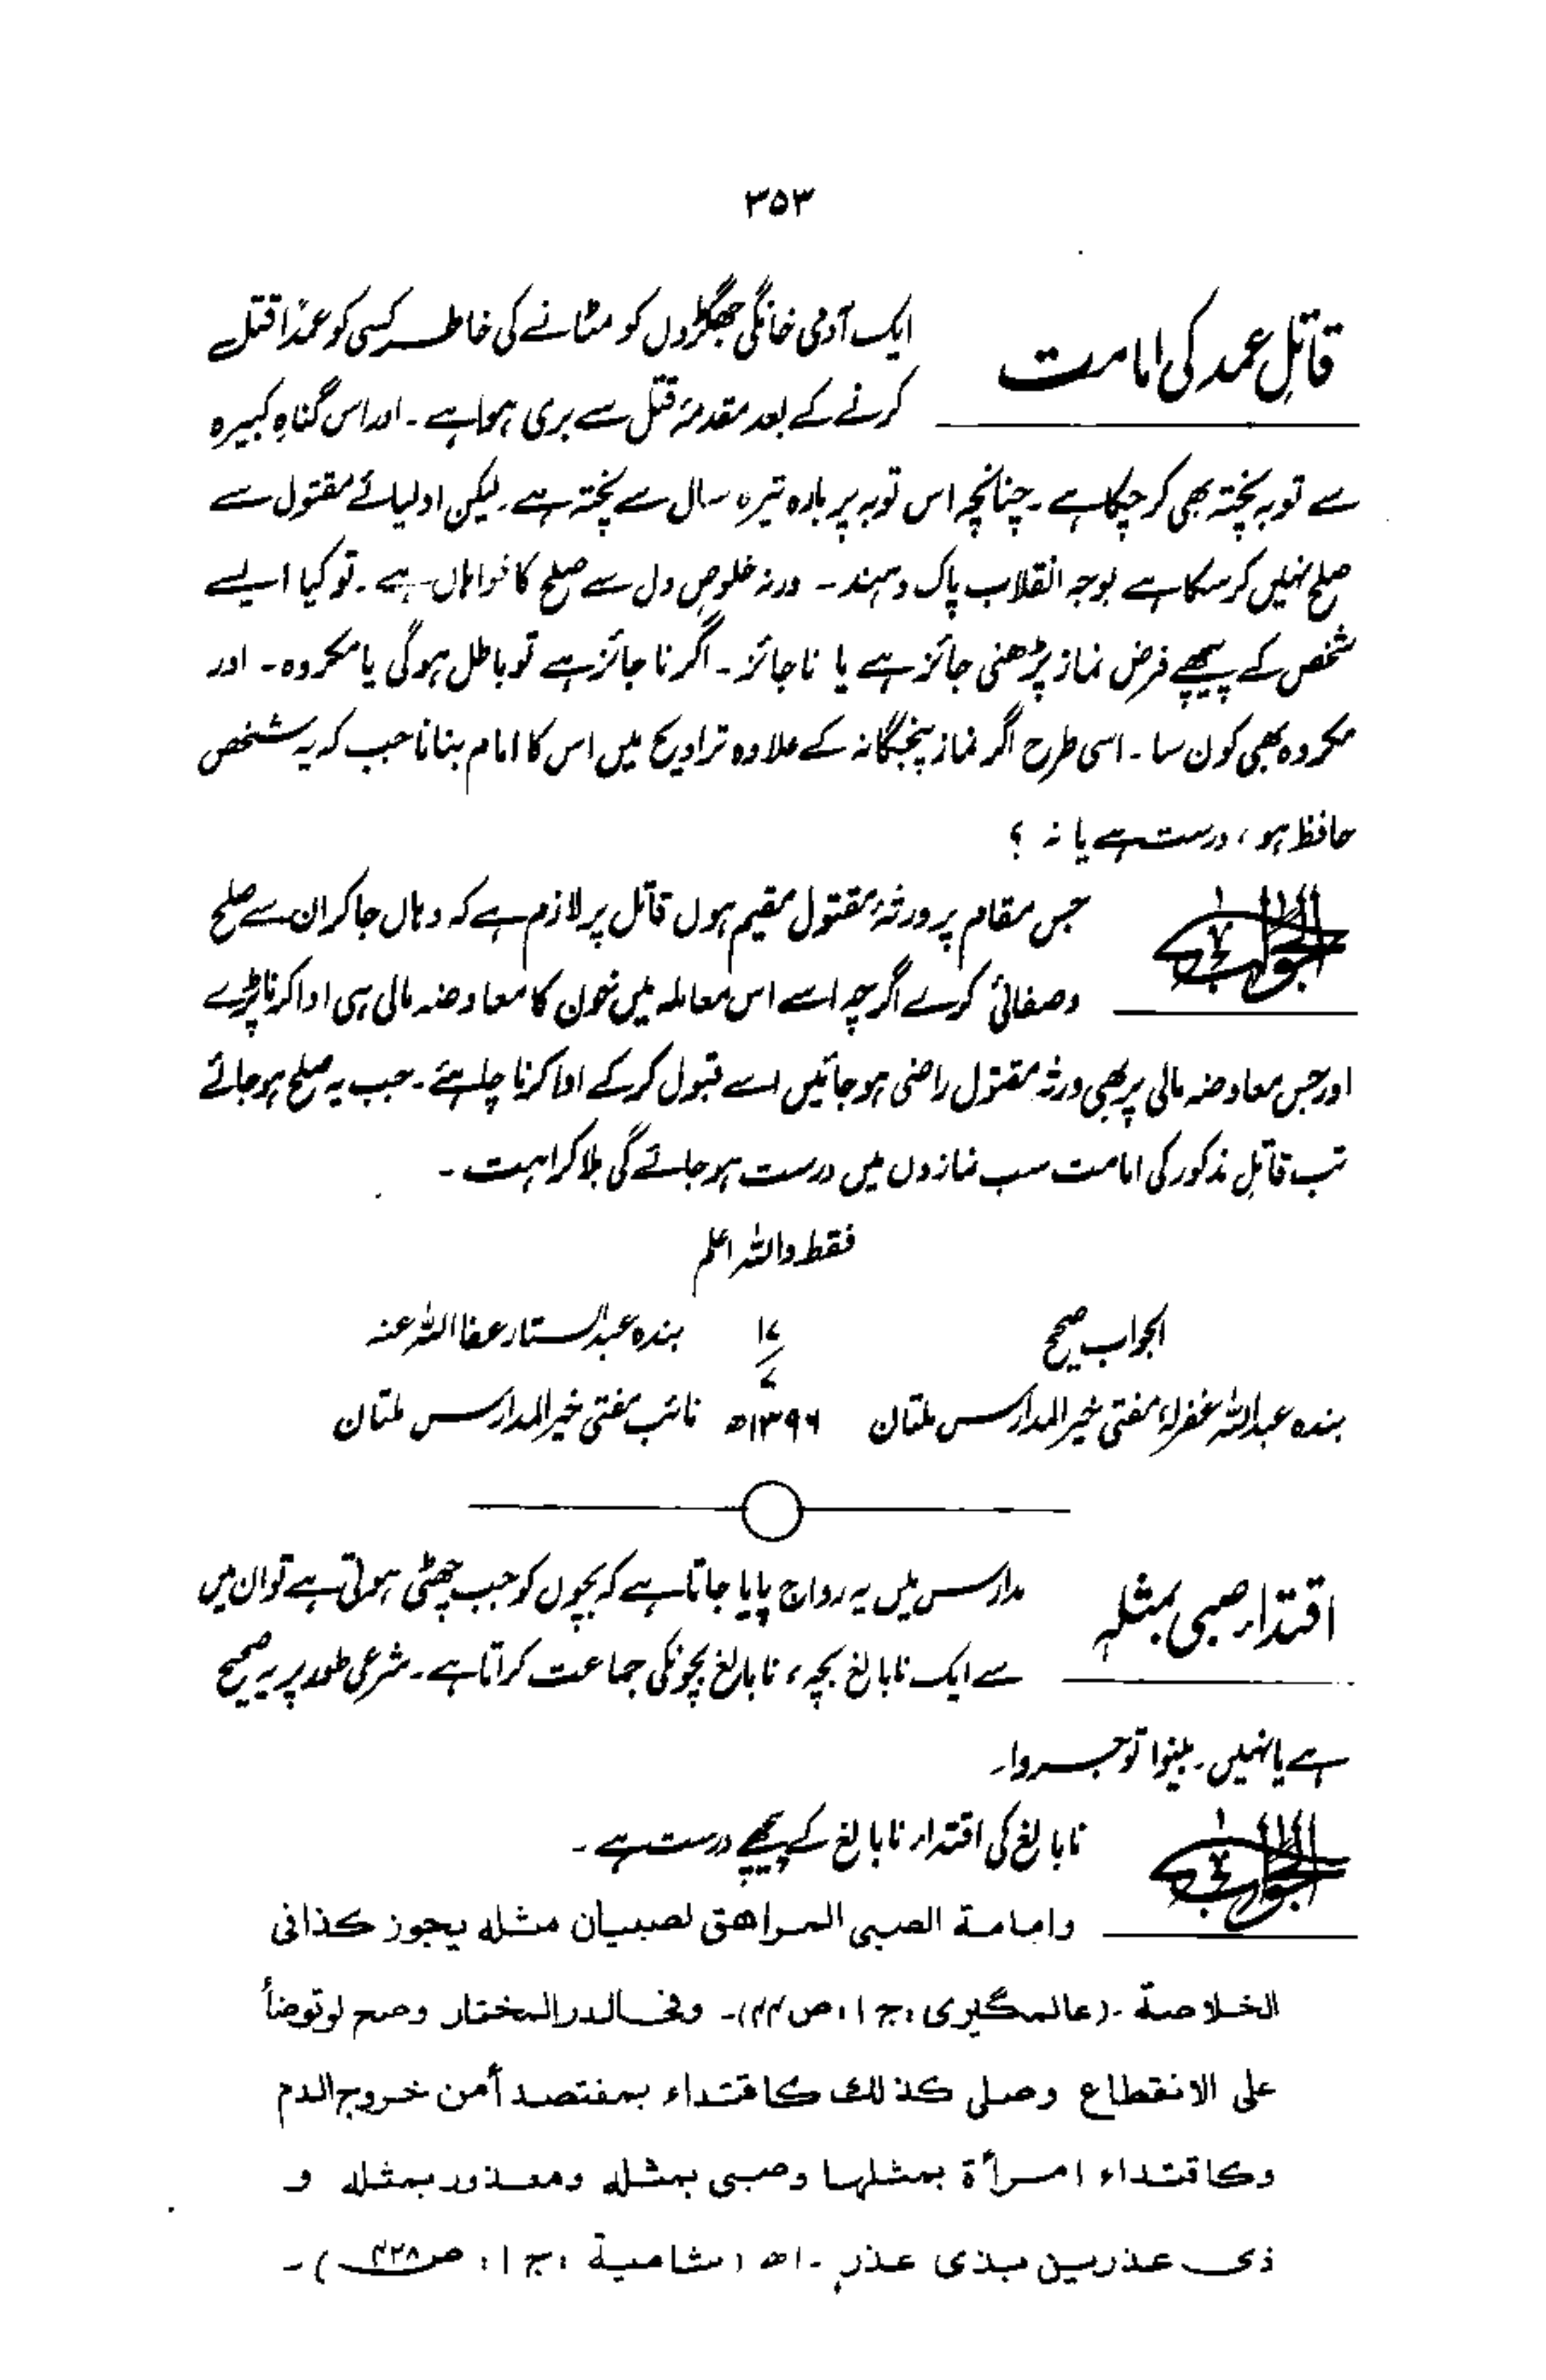 ۳۵۳
قاتلِ عمد کی امامت
ایک آدمی خانگی جھگڑوں کو مٹانے کی خاطر کسی کو عمدًا قتل
کرنے کے بعد مقدمۂ قتل سے بری ہوا ہے ۔ اور اس گناہِ کبیرہ
سے توبہ پختہ بھی کر چکا ہے ۔ چنانچہ اس توبہ پر بارہ تیرہ سال سے پختہ ہے ۔ لیکن اولیائے مقتول سے
صلح نہیں کر سکا ہے بوجہ انقلاب پاک و ہند ۔ ورنہ خلوصِ دل سے صلح کا خواہاں ہے ۔ تو کیا ایسے
شخص کے پیچھے فرض نماز پڑھنی جائز ہے یا ناجائز ۔ اگر ناجائز ہے تو باطل ہو گی یا مکروہ ۔ اور
مکروہ بھی کون سا ۔ اسی طرح اگر نماز پنجگانہ کے علاوہ تراویح میں اس کا امام بنانا جب کہ یہ شخص
حافظ ہو ، درست ہے یا نہ ؟
الجواب
جس مقام پر ورثۂ مقتول مقیم ہوں قاتل پر لازم ہے کہ وہاں جا کر ان سے صلح
و صفائی کرے اگرچہ اسے اس معاملہ میں خون کا معاوضہ مالی ہی ادا کرنا پڑے
اور جس معاوضہ مالی پر بھی ورثہ مقتول راضی ہو جائیں اسے قبول کر کے ادا کرنا چاہئے ۔ جب یہ صلح ہو جائے
تب قاتلِ مذکور کی امامت سب نمازوں میں درست ہو جائے گی بلا کراہت ۔
فقط واللہ اعلم
الجواب صحیح
بندہ عبداللہ غفرلہٗ مفتی خیر المدارس ملتان
۱۷
۷
۱۳۹۶ھ
بندہ عبدالستار عفا اللہ عنہ
نائب مفتی خیر المدارس ملتان
اقتداء صبی بمثلہٖ
مدارس میں یہ رواج پایا جاتا ہے کہ بچوں کو جب چھٹی ہوتی ہے تو ان میں
سے ایک نابالغ بچہ ، نابالغ بچونکی جماعت کراتا ہے ۔ شرعی طور پر یہ صحیح
ہے یا نہیں ۔ بینوا توجروا ۔
الجواب
نابالغ کی اقتداء نابالغ کے پیچھے درست ہے ۔
وامامة الصبی المراهق لصبیان مثله یجوز کذا فی
الخلاصة ۔ (عالمگیری ، ج ۱ ، ص ۴۴) ۔ وفی الدر المختار وصح لو توضأ
علی الانقطاع وصلی کذلك کاقتداء بمفتصد أمن خروج الدم
وکاقتداء امرأة بمثلها وصبی بمثله ومعذور بمثله و
ذی عذرین بذی عذرٍ ۔ اھ (شامیة ، ج ۱ ، ص ۴۲۸) ۔